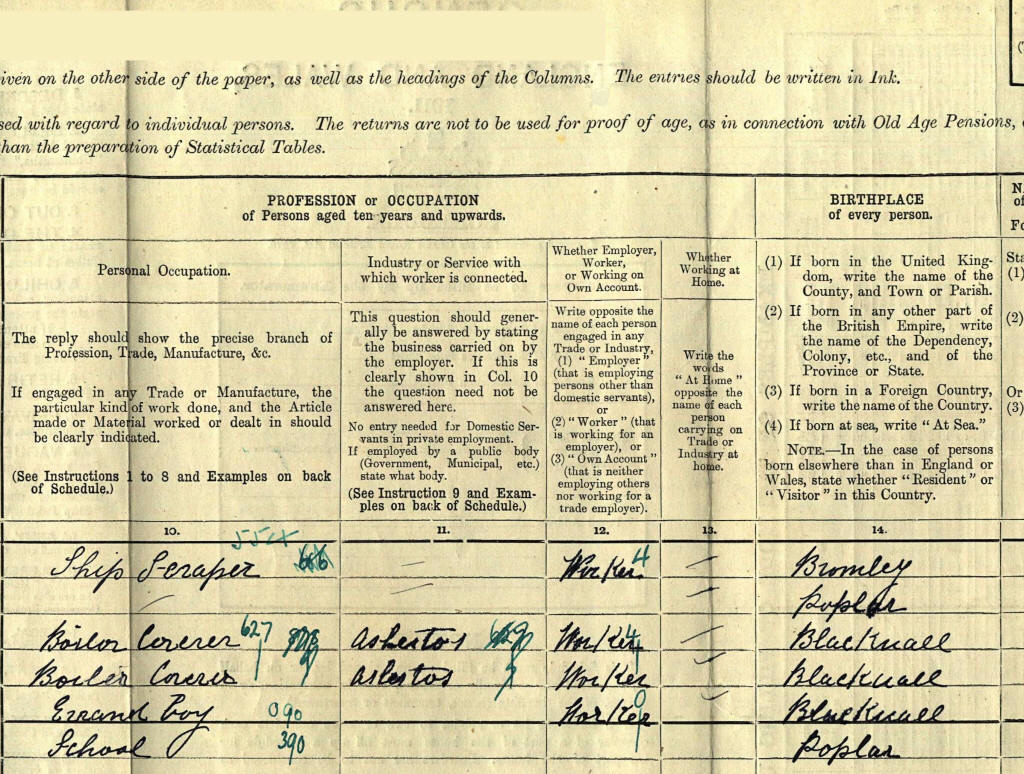 iven on the other side of the paper, as well as the headings of the Columns. The entries should be written in Ink.
sed with regard to individual persons. The returns are not to be used for proof of age, as in connection with Old Age Pensions,
than the preparation of Statistical Tables.
PROFESSION or OCCUPATION
of Persons aged ten years and upwards.
BIRTHPLACE
of every person.
Personal Occupation.
The reply should show the precise branch of
Profession, Trade, Manufacture, &c.
If engaged in any Trade or Manufacture, the
particular kind of work done, and the Article
made or Material worked or dealt in should
be clearly indicated.
(See Instructions 1 to 8 and Examples on back
of Schedule.)
Industry or Service with
which worker is connected.
This question should gener-
ally be answered by stating
the business carried on by
the employer. If this is
clearly shown in Col. 10
the question need not be
answered here.
No entry needed for Domestic Ser-
vants in private employment.
If employed by a public body
(Government, Municipal, etc.)
state what body.
(See Instruction 9 and Exam-
ples on back of Schedule.)
Whether Employer,
Worker,
or Working on
Own Account.
Write opposite the
name of each person
engaged in any
Trade or Industry,
(1) "Employer"
(that is employing
persons other than
domestic servants),
or
(2) "Worker" (that
is working for an
employer), or
(3) "Own Account"
(that is neither
employing others
nor working for a
trade employer).
Whether
Working at
Home.
Write the
words
"At Home"
opposite the
name of each
person
carrying on
Trade or
Industry at
home.
(1) If born in the United King-
dom, write the name of the
County, and Town or Parish.
(2) If born in any other part of
the British Empire, write
the name of the Dependency,
Colony, etc., and of the
Province or State.
(3) If born in a Foreign Country,
write the name of the Country.
(4) If born at sea, write "At Sea."
NOTE.—In the case of persons
born elsewhere than in England or
Wales, state whether "Resident" or
"Visitor" in this Country.
Sta
(1)
(2)
Or
(3)
10. 11. 12. 13. 14.
Ship Scraper Worker 4 Bromley
Poplar
Boilor Coverer 627 Asbestos Worker Blacknall
Boiler Coverer Asbestos Worker Blacknall
Errand Boy 090 Worker Blacknall
School 390 Poplar